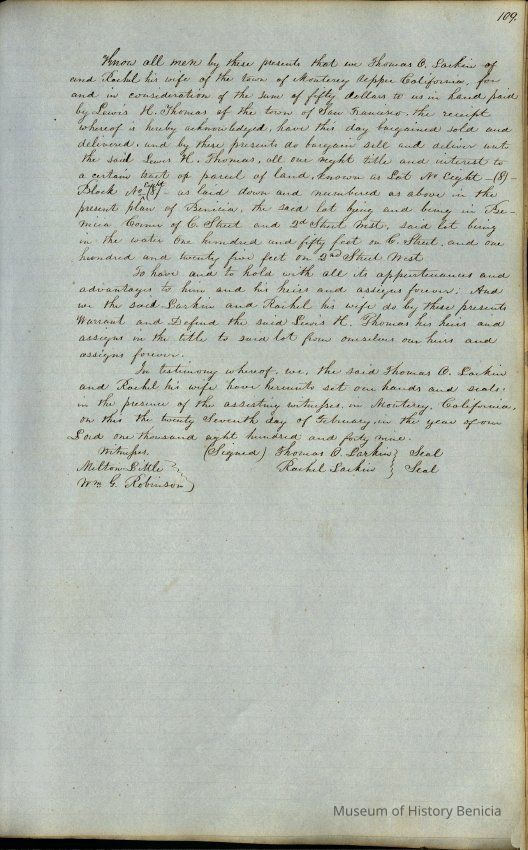 109.
Know all men by these presents that we Thomas O. Larkin of
and Rachel his wife of the town of Monterey Upper California, for
and in consideration of the sum of fifty dollars to us in hand paid
by Lewis H. Thomas of the town of San Francisco, the receipt
whereof is hereby acknowledged, have this day bargained sold and
delivered, and by these presents do bargain sell and deliver unto
the said Lewis H. Thomas, all our right title and interest to
a certain tract or parcel of land, known as Lot No Eight -(8)-
Block No Eight (8) - as laid down and numbered as above in the
present plan of Benicia, the said lot lying and being in Be-
nicia, Corner of C. Street and 2d Street West, said lot being
in the water One hundred and fifty feet on C. Street, and one
hundred and twenty five feet on 2nd Street West
To have and to hold with all its appurtenances and
advantages to him and his heirs and assigns forever; And
we the said Larkin and Rachel his wife do by these presents
Warrant and Defend the said Lewis H. Thomas his heirs and
assigns in the title to said lot from ourselves our heirs and
assigns forever.
In testimony whereof, we, the said Thomas O. Larkin
and Rachel his wife have hereunto set our hands and seals
in the presence of the assisting witnesses, in Monterey, California,
on this the twenty Seventh day of February, in the year of our
Lord one thousand eight hundred and forty nine.
Witness. (Signed) Thomas O. Larkin } Seal
Milton Little } Rachel Larkin } Seal
Wm G. Robinson }
Museum of History Benicia